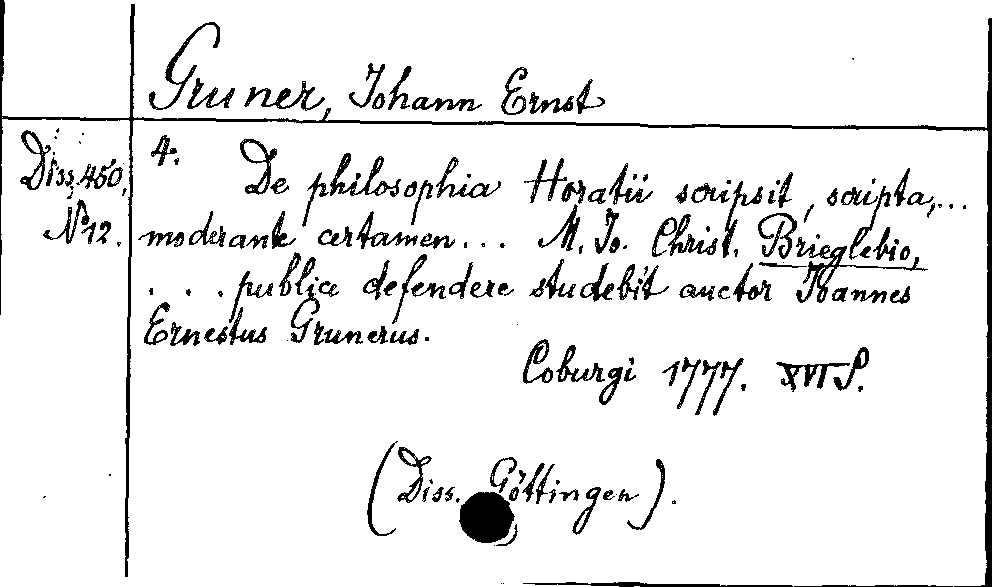 Gruner, Johann Ernst
Diss. 450,
No 12.
4. De philosophia Horatii scripsit, scripta,...
moderante certamen... M. Jo. Christ. Brieglebio,
... publice defendere studebit auctor Joannes
Ernestus Grunerus.
Coburgi 1777. XVI S.
(Diss. Göttingen).